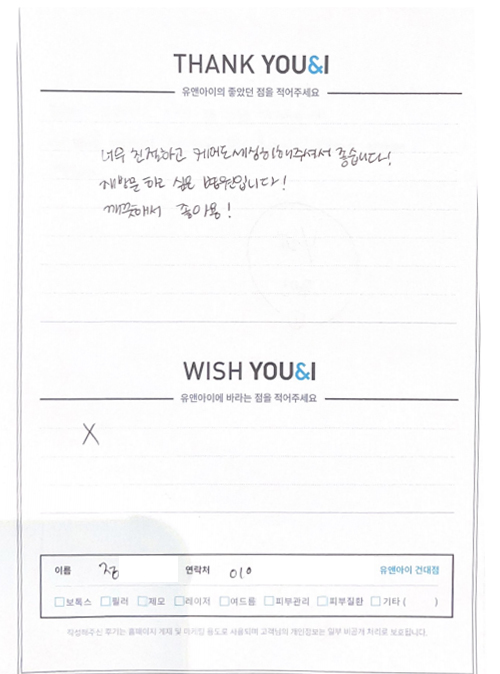 THANK YOU&I
유앤아이의 좋았던 점을 적어주세요
너무 친절하고 케어도 세심히 해주셔서 좋습니다!
재방문 하고 싶은 병원입니다!
깨끗해서 좋아용!
WISH YOU&I
유앤아이에 바라는 점을 적어주세요
X
이름 연락처 010 유앤아이 건대점
보톡스 필러 제모 레이저 여드름 피부관리 피부질환 기타 ( )
작성해주신 후기는 홈페이지 게재 및 마케팅 용도로 사용되며 고객님의 개인정보는 일부 비공개 처리로 보호됩니다.